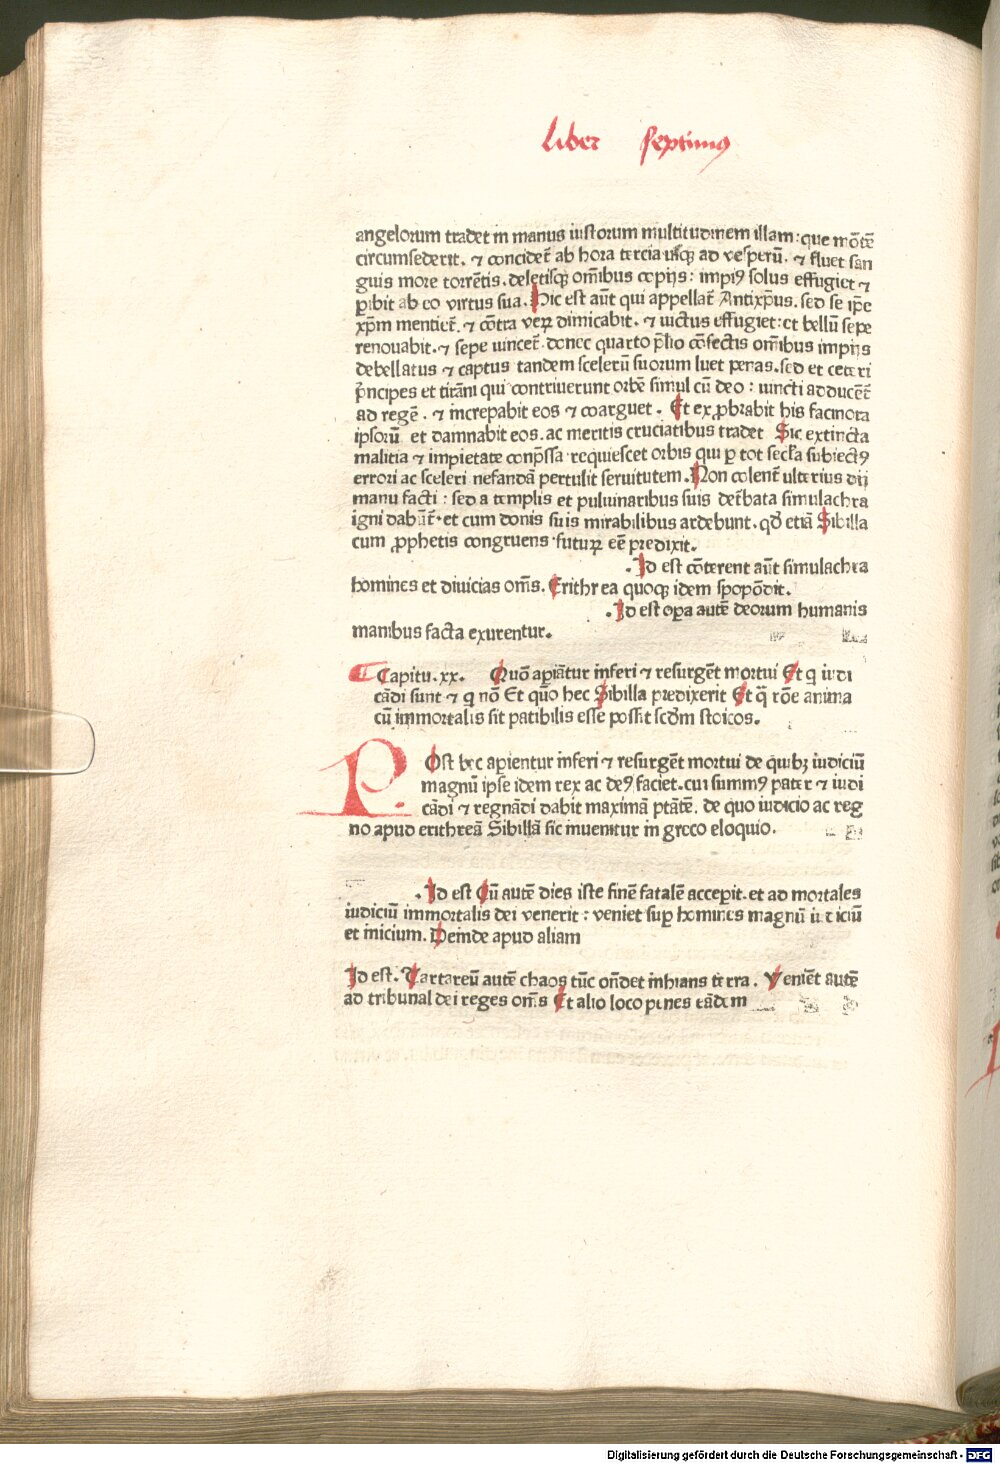 liber septimꝰ
angelorum tradet in manus iustorum multitudinem illam: que mōtē
circumsederit. ⁊ concidet̄ ab hora tercia usqꝫ ad vesperū. ⁊ fluet san
guis more torrētis. deletisqꝫ om̄ibus copijs: impiꝰ solus effugiet ⁊
ꝑibit ab eo virtus sua. Hic est aūt qui appellat̄ Antixp̄us. sed se ip̄e
xp̄m mentiet̄. ⁊ cōtra veꝝ dimicabit. ⁊ uictus effugiet: et bellū sepe
renouabit. ⁊ sepe uincet̄. donec quarto p̄lio cōfectis om̄ibus impijs
debellatus ⁊ captus tandem scelerū suorum luet penas. sed et ceteri
p̄ncipes et tirāni qui contriuerunt orbē simul cū deo: uincti adducēt̄
ad regē. ⁊ increpabit eos ⁊ coarguet. Et exꝓbrabit his facinora
ipsorū et damnabit eos. ac meritis cruciatibus tradet Sic extincta
malitia ⁊ impietate conp̄ssa requiescet orbis qui ꝑ tot secĺa subiectꝰ
errori ac sceleri nefandā pertulit seruitutem. Non colent̄ ulterius dij
manu facti: sed a templis et puluinaribus suis det̄bata simulachra
igni dabūt̄. et cum donis suis mirabilibus ardebunt. qd̄ etiā Sibilla
cum ꝓphetis congruens futuꝝ eē predixit.
. Id est cōterent aūt simulachra
homines et diuicias om̄s. Erithrea quoqꝫ idem spopōdit.
. Id est oꝑa autē deorum humanis
manibus facta exurentur.
Capitu. xx. Quō aꝑiātur inferi ⁊ resurgēt mortui Et q̄ iudi
cādi sunt ⁊ q̄ nō Et quō hec Sibilla predixerit Et q̄ rōe anima
cū immortalis sit patibilis esse possit scd̄m stoicos.
POst hec aꝑientur inferi ⁊ resurgēt mortui de quibꝫ iudiciū
magnū ipse idem rex ac deꝰ faciet. cui summꝰ pater ⁊ iudi
cādi ⁊ regnādi dabit maximā ptātē. de quo iudicio ac reg
no apud erithreā Sibillā sic inuenitur in greco eloquio.
. Id est Cū autē dies iste finē fatalē acceꝑit. et ad mortales
iudiciū immortalis dei venerit: veniet suꝑ homines magnū iudiciū
et inicium. Deinde apud aliam
Id est. Tartareū autē chaos tūc ōndet inhians terra. Veniēt autē
ad tribunal dei reges om̄s Et alio loco penes eādem
Digitalisierung gefördert durch die Deutsche Forschungsgemeinschaft - DFG